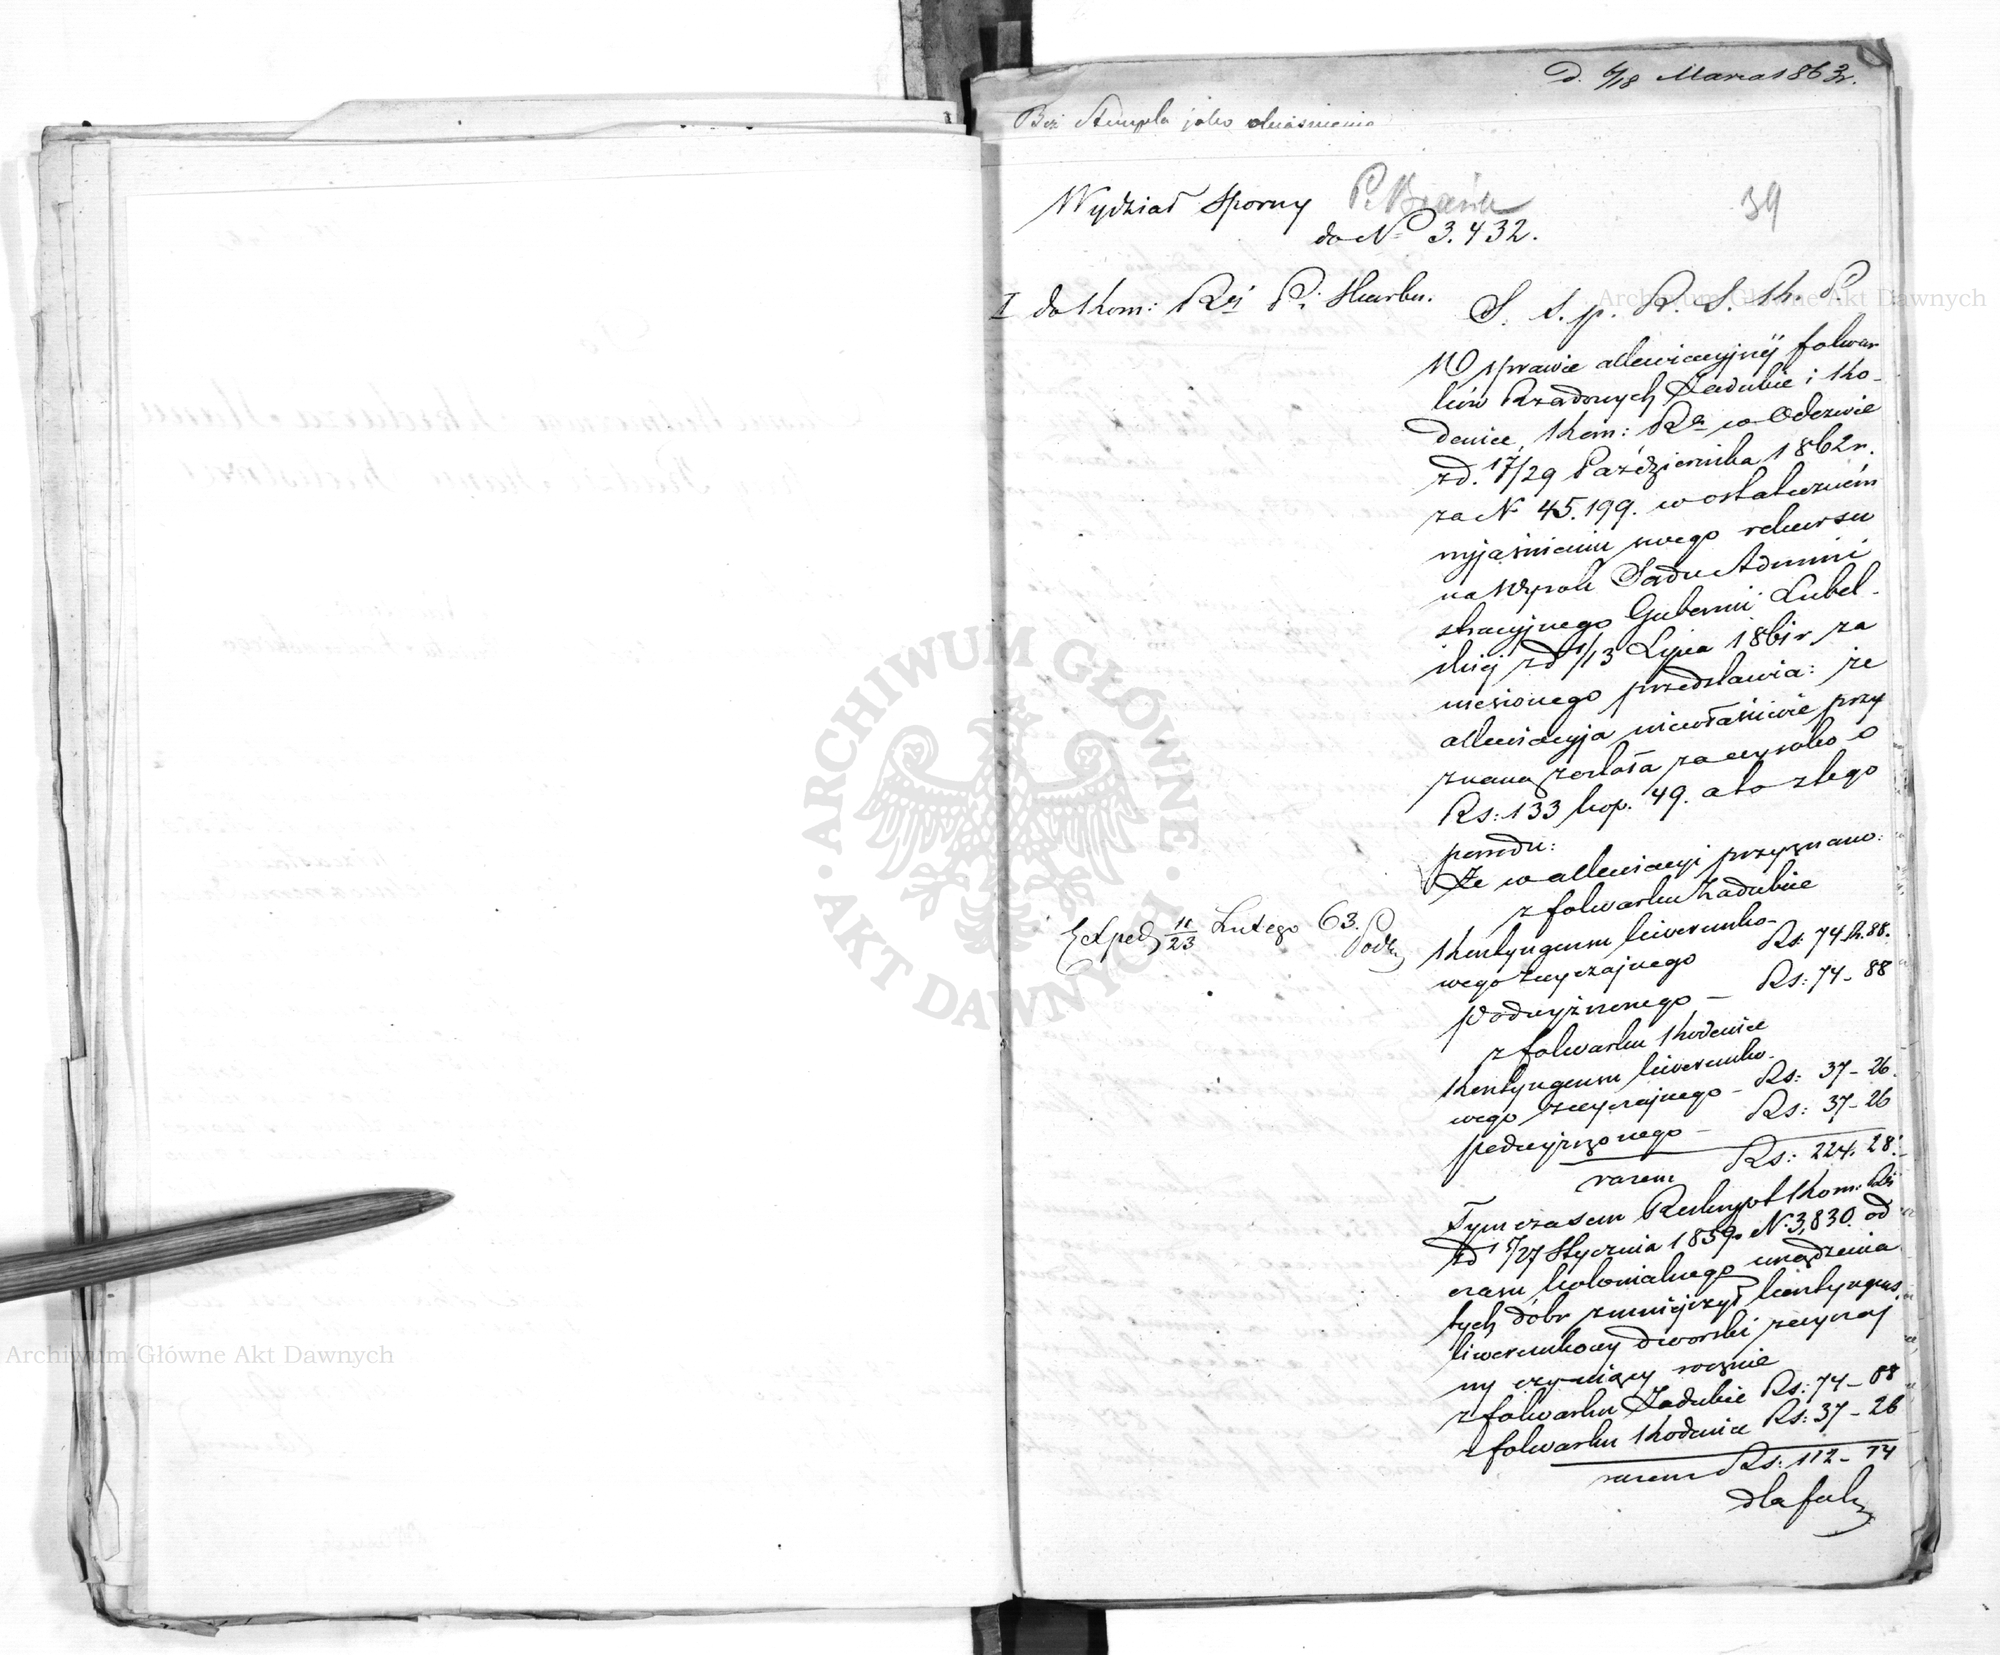 D. 6/18 Marca 1863 r.
Bez Stempla jako objaśnienie
Wydział Sporny
do № 3.432.
39
I do Kom: Rej Pi Skarbu.
S. s. p. R. S. K. P.
W sprawie allewiacyjnej folwar
ków Rządowych Żadubie i Ko-
denice, Kom: Ra w Odezwie
zd. 17/29 Października 1862 r.
za № 45.199. w ostatecznem
wyjaśnieniu swego rekursu
na Wyrok Sądu Admini
stracyjnego Gubernii Lubel-
skiej zd 1/13 Lipca 1861 r za
niesionego przedstawia: że
allewiacyja niewłaściwie przy
znaną została za wysoko o
Rs: 133 kop. 49. a to z tego
powodu:
Że w allewiacyi przyznano:
z folwarku Żadubie
Kontyngensu liwerunko-
wego zwyczajnego Rs: 74 k. 88.
Podwyższonego — Rs: 74 - 88
z folwarku Kodenice
Kontyngensu liwerunko-
wego zwyczajnego - Rs: 37 - 26.
podwyższonego - Rs: 37 - 26
razem Rs: 224. 28.
Tymczasem Reskrypt Kom: Rei
zd 15/27 Stycznia 1859 r № 3,830. od
czasu kolonialnego urządzenia
tych dóbr zmniejszył kontyngens
liwerunkowy dworski zwyczaj
ny czyniący rocznie
z folwarku Żadubie Rs: 74 - 88
z folwarku Kodenice Rs: 37 - 26
razem Rs: 112 - 14
dla folw
Exped 11/23 Lutego 63.
Archiwum Główne Akt Dawnych
Archiwum Główne Akt Dawnych
ARCHIWUM GŁÓWNE AKT DAWNYCH